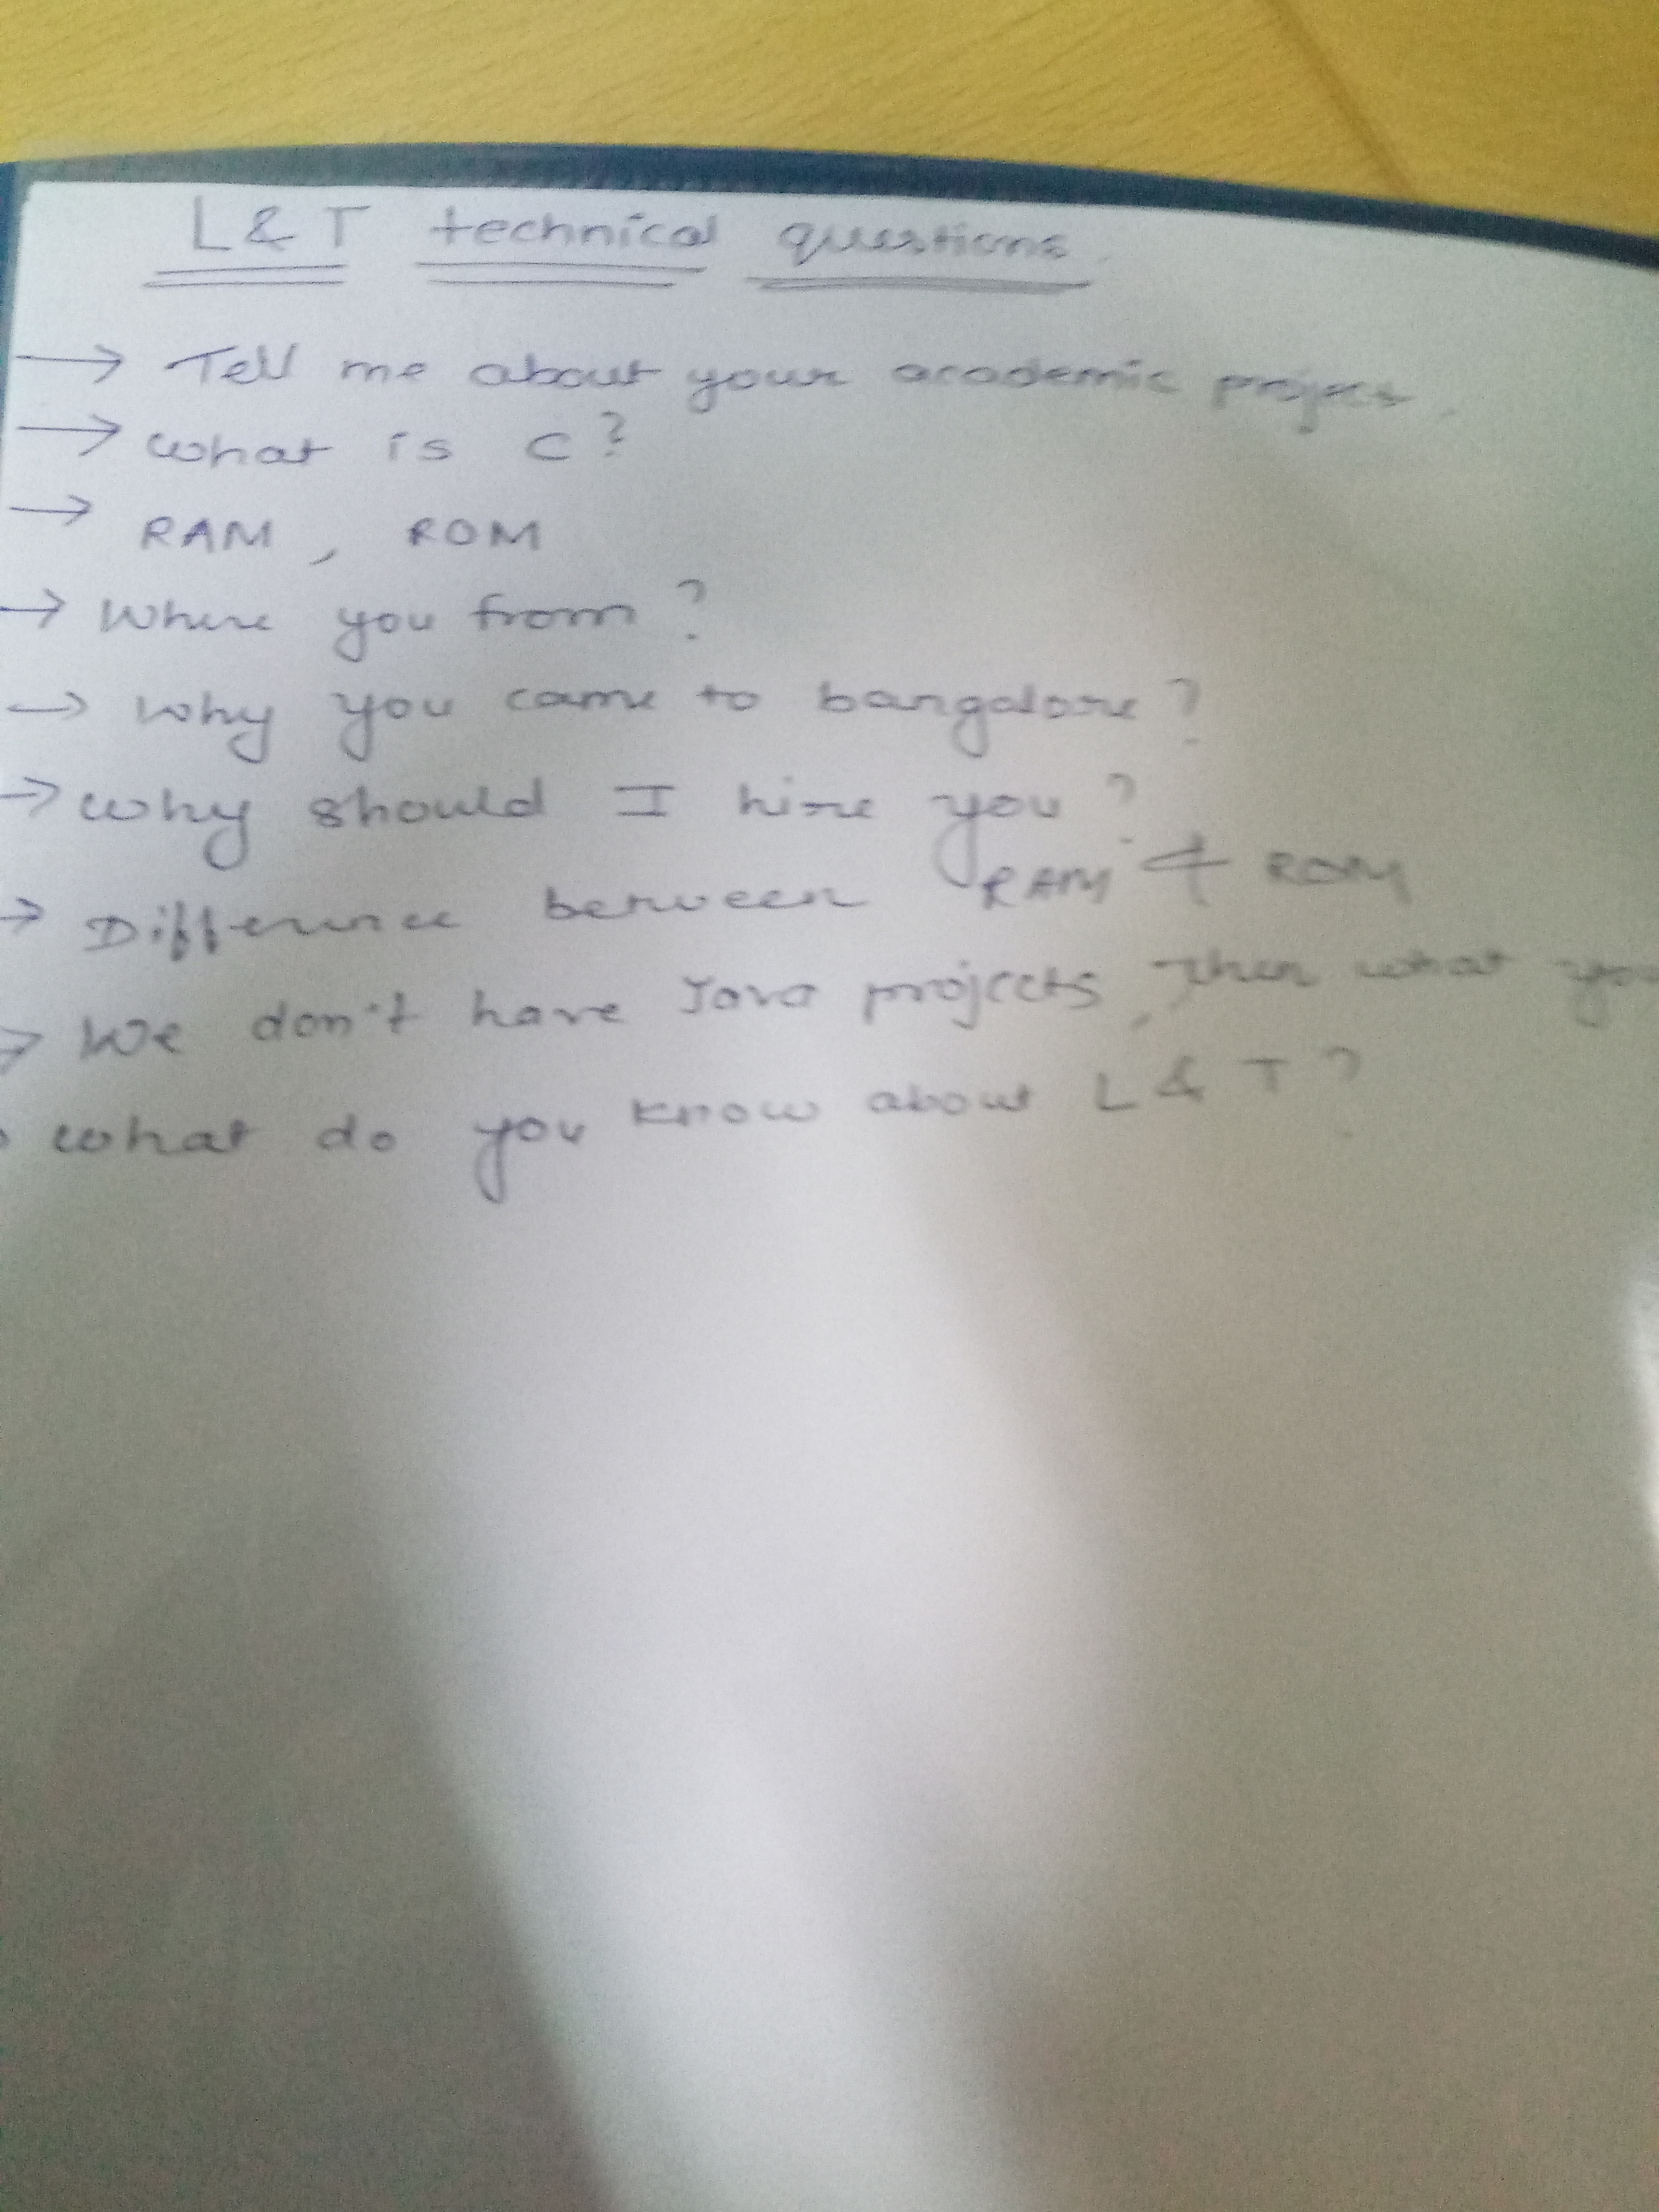 L & T technical questions
→ Tell me about your academic project.
→ what is C?
→ RAM, ROM
→ Where you from?
→ Why you came to bangalore?
→ why should I hire you?
→ Difference between RAM & ROM
→ We don't have Java projects, then what you
what do you know about L & T?